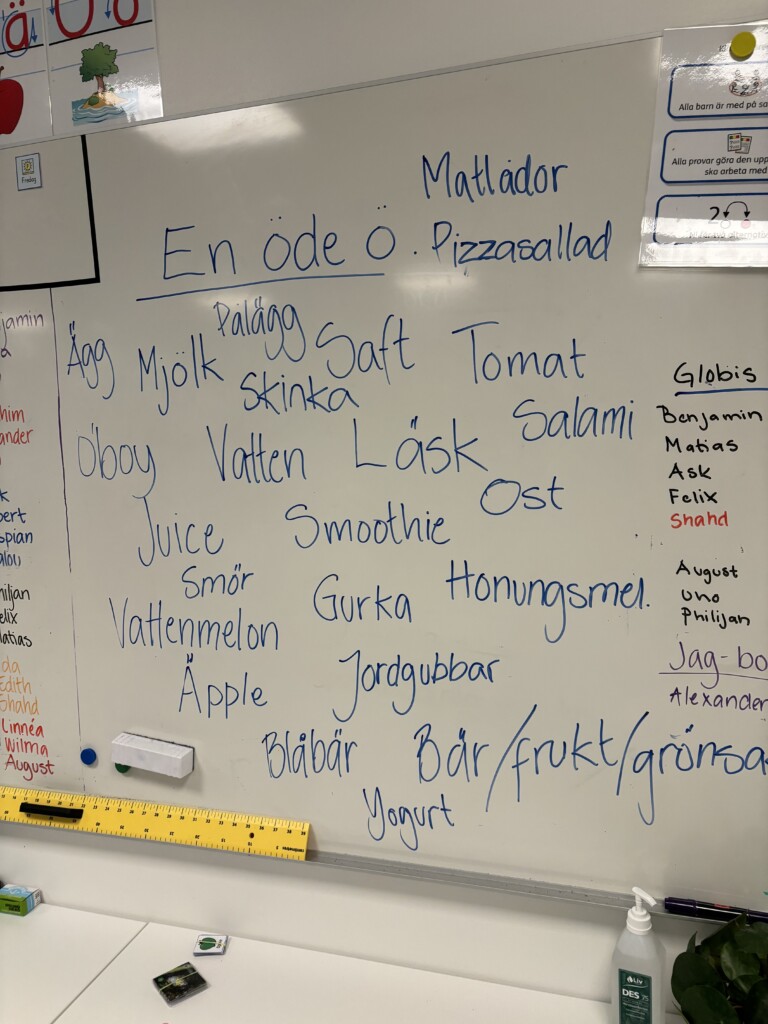 ä
Ö ö
Fredag
Alla barn är med på
Alla provar göra den
ska arbeta med
2
Matlådor
En öde ö. Pizzasallad
Pålägg
Ägg Mjölk Saft Tomat
Skinka
O'boy Vatten Läsk Salami
Ost
Juice Smoothie
Smör Gurka Honungsmel.
Vattenmelon
Äpple Jordgubbar
Blåbär Bär/frukt/grönsa
Yogurt
jamin
him
ander
k
bert
spian
alou
hiljan
elix
atias
da
Edith
Shahd
Linnéa
Wilma
August
Globis
Benjamin
Matias
Ask
Felix
Shahd
August
uno
Philijan
Jag-bo
Alexander
LIV
DES 75